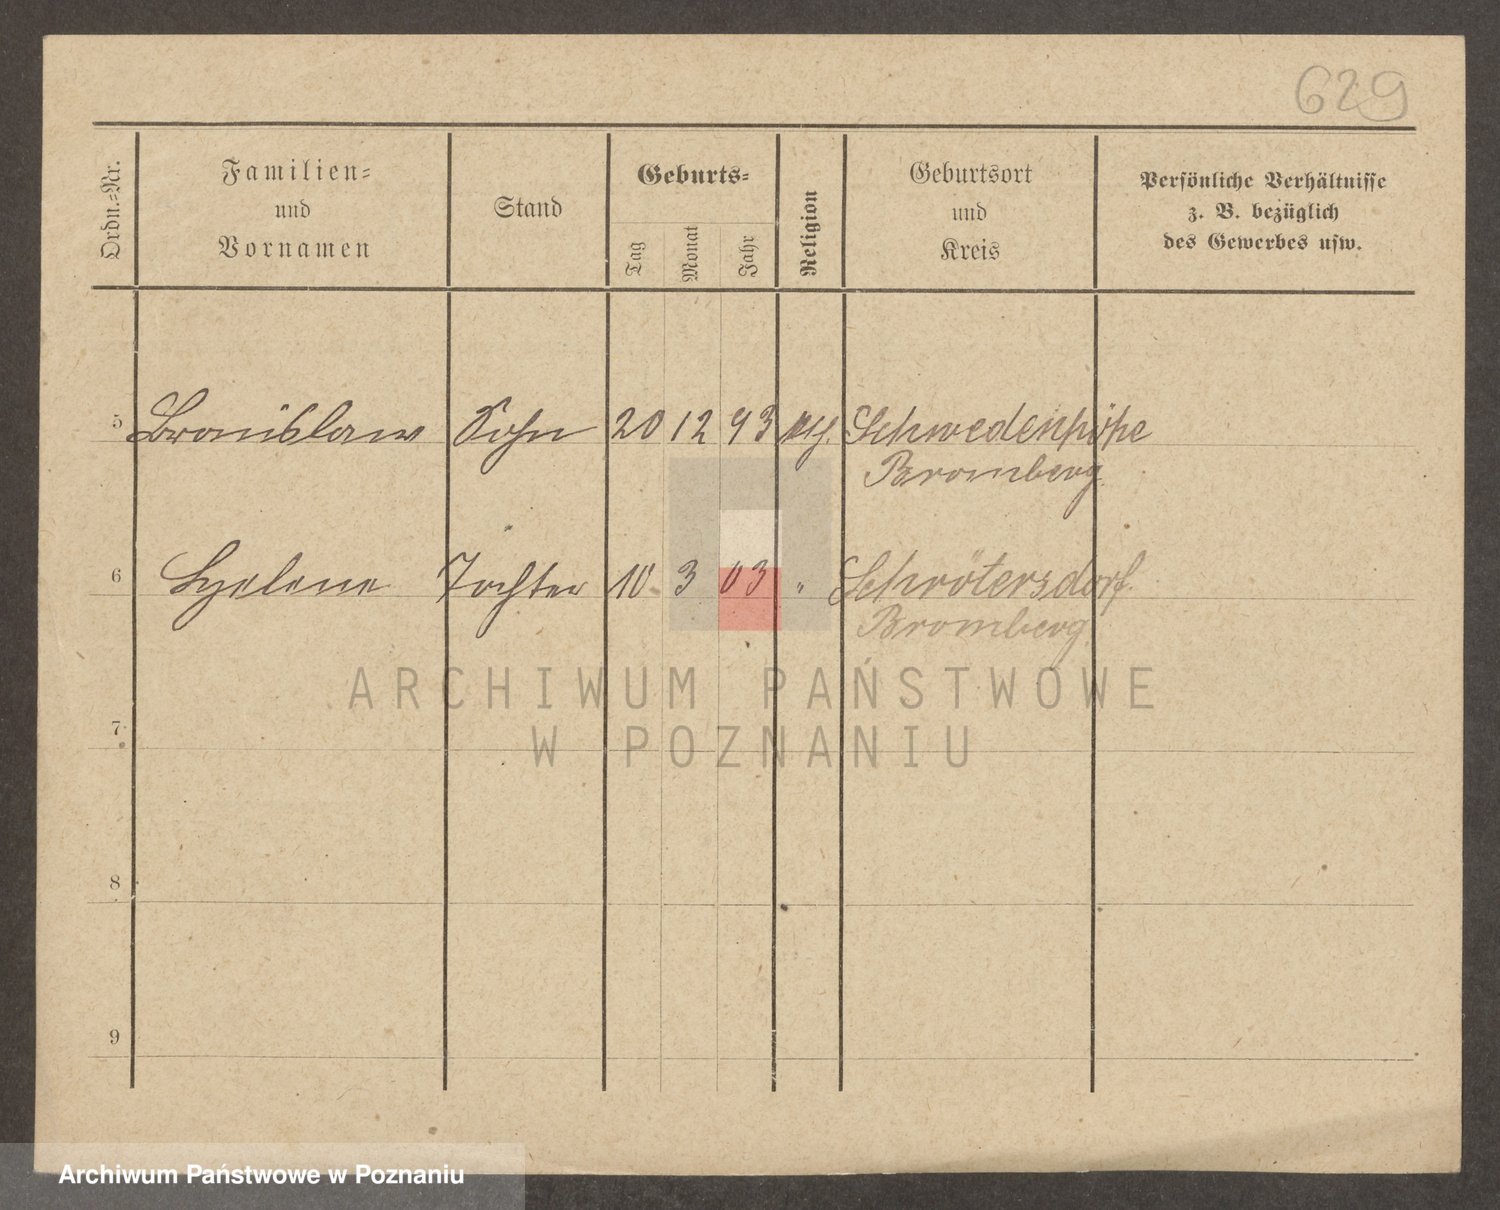 629
Ordn.-Nr.
Familien-
und
Vornamen
Stand
Geburts-
Tag
Monat
Jahr
Religion
Geburtsort
und
Kreis
Persönliche Verhältnisse
z. B. bezüglich
des Gewerbes usw.
5 Bronislaw Sohn 20 12 93 Schwedenhöhe
Bromberg
6 Helene Tochter 10 3 03 " Schrötersdorf.
Bromberg
ARCHIWUM PAŃSTWOWE
W POZNANIU
7
8
9
Archiwum Państwowe w Poznaniu